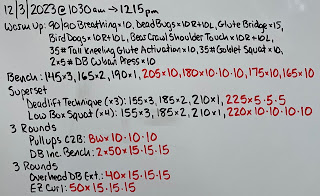 12/3/2023 @ 1030am → 1215pm
Warm Up: 90/90 Breathing x 10, Dead Bugs x 10R+10L, Glute Bridge x 15,
Bird Dogs x 10R+10L, Bear Crawl Shoulder Touch x 10R+10L,
35# Tall Kneeling Glute Activation x 10, 35# Goblet Squat x 10,
2x5# DB Cuban Press x 10
Bench: 145x3, 165x2, 190x1, 205x10, 180x10·10·10, 175x10, 165x10
Superset
Deadlift Technique (x3): 155x3, 185x2, 210x1, 225x5·5·5
Low Box Squat (x4): 155x3, 185x2, 210x1, 220x10·10·10·10
3 Rounds
Pullups C2B: BWx10·10·10
DB Inc. Bench: 2x50x15·15·15
3 Rounds
Overhead DB Ext.: 40x15·15·15
EZ Curl: 50x15·15·15